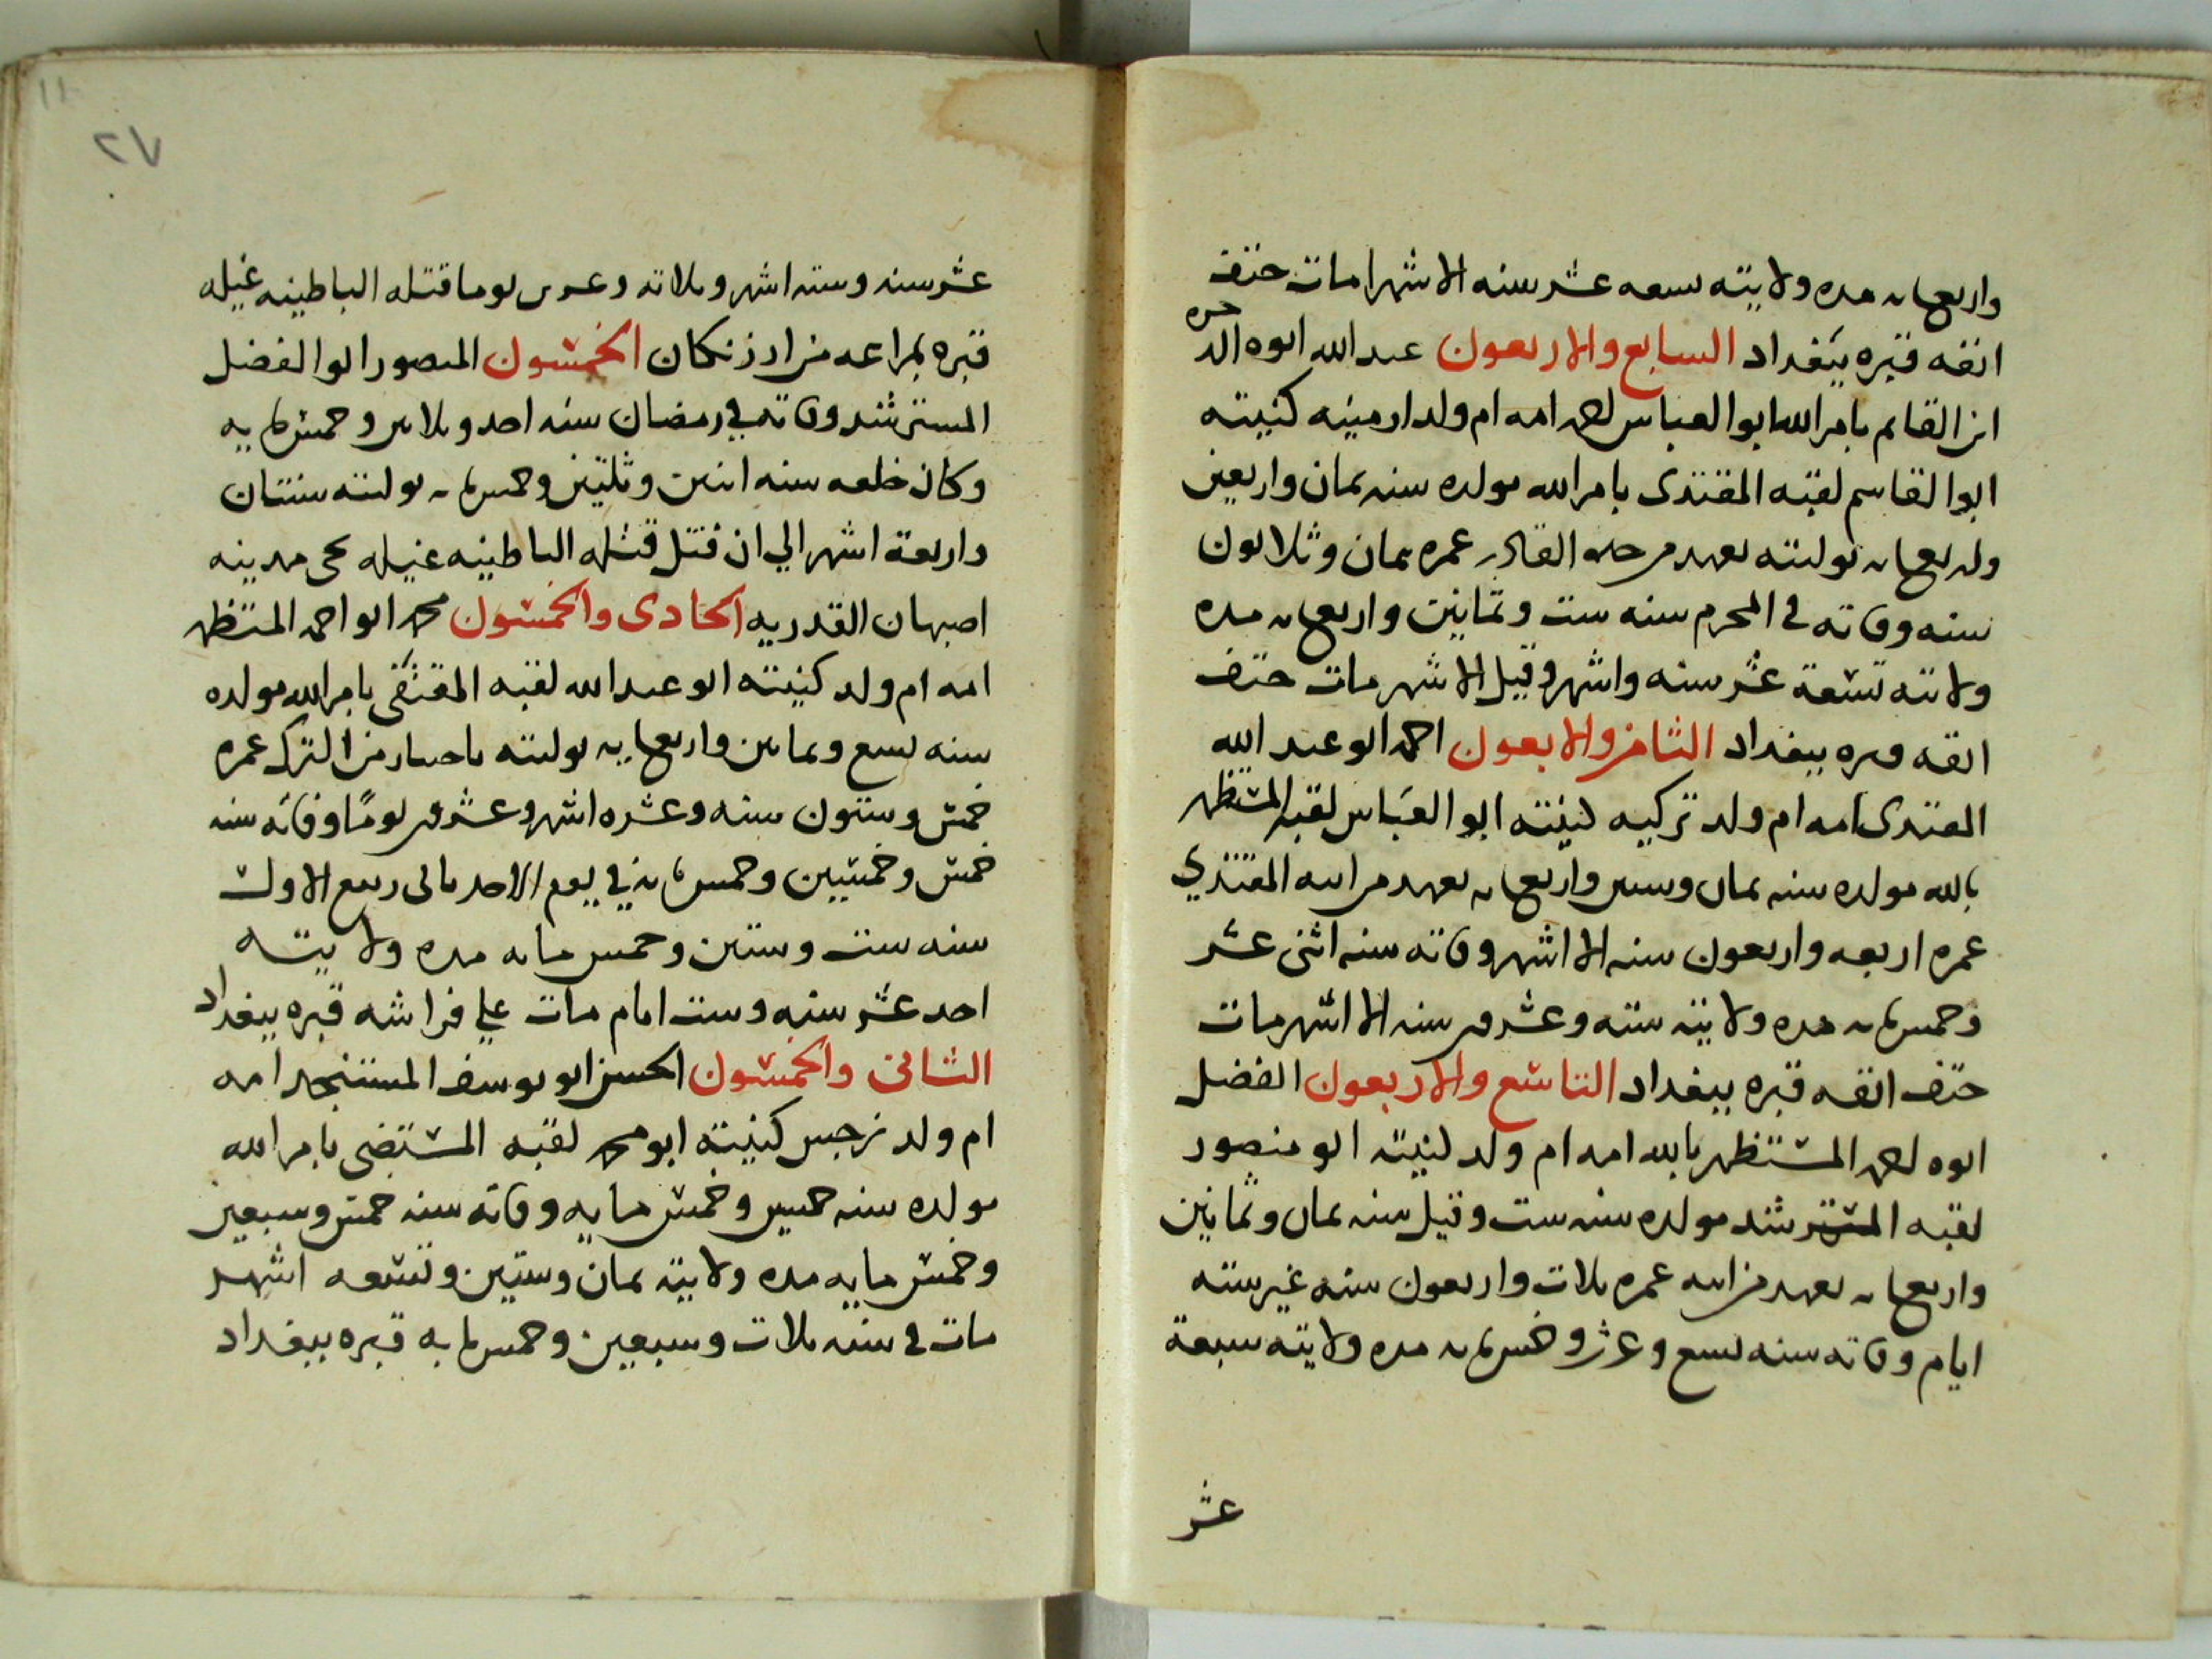 واربعمايه مده ولايته سبعه عشر سنه الا شهرا مات حتف
انفه قبره ببغداد السابع والاربعون عبدالله ابوه الد خيره
ابن القايم بامرالله ابوالعباس احمد امه ام ولد ارمينه كنيته
ابوا لقاسم لقبه المقتدى بامرالله مولده سنه ثمان واربعين
واربعمايه توليته بعهد من جده القادر عمره ثمان وثلاثون
سنه وفاته في المحرم سنه ست وثمانين واربعمايه مده
ولاته تسعة عشر سنه واشهر وقيل الا شهر مات حتف
انفه قبره ببغداد الثامن والابعون احمد ابو عبد الله
المقتدى امه ام ولد تركيه كنيته ابوا العباس لقبه المستظهر
بالله مولده سنه ثمان وستين واربعمايه بعهد من ابيه المقتدي
عمره اربعه واربعون سنه الا اشهر وفاته سنه اثنى عشر
وخمسمايه مده ولايته سته وعشرين سنه الا اشهر مات
حتف انفه قبره ببغداد التاسع والاربعون الفضل
ابوه احمد المستظهر بالله امه ام ولد كنيته ابو منصور
لقبه المسترشد مولده سنه ست وقيل سنه ثمان وثمانين
واربعمايه بعهد من ابيه عمره ثلاث واربعون سنه غير سته
ايام وفاته سنه تسع وعشر وخمسمايه مده ولايته سبعة
عشر
٢٧
عشر سنه وسته اشهر وثلاثه وعشرين يوما قتله الباطينه غيله
قبره بمراعه من اذرنكان الخمسون المنصور ابوا لفضل
المسترشد وفاته في رمضان سنه احد وثلاثين وخمسمايه
وكان خلعه سنه اثنين وثلثين وخمسمايه توليته سنتان
واربعة اشهر الي ان قتل قتله الباطينه غيله بحى مدينه
اصبهان القدريه الحادى والخمسون محمد ابو احمد المستظهر
امه ام ولد كنيته ابو عبد الله لقبه المقتفى بامرالله مولده
سنه تسع وثمانين واربعمايه توليته باختيار من الترك عمره
خمس وستون سنه وعشره اشهر وعشرين يومًا وفاته سنه
خمس وخمسين وخمسمايه في يوم الاحد ثانى ربيع الاول
سنه ست وستين وخمس مايه مده ولايته
احد عشر سنه وست ايام مات علي فراشه قبره ببغداد
الثانى والخمسون الحسن ابو يوسف المستنجد امه
ام ولد نرجس كنيته ابو محمد لقبه المستضى بامر الله
مولده سنه خمسين وخمس مايه وفاته سنه خمس وسبعين
وخمس مايه مده ولايته ثمان وستين وتسعه اشهر
مات في سنه ثلاث وسبعين وخمسمايه قبره ببغداد